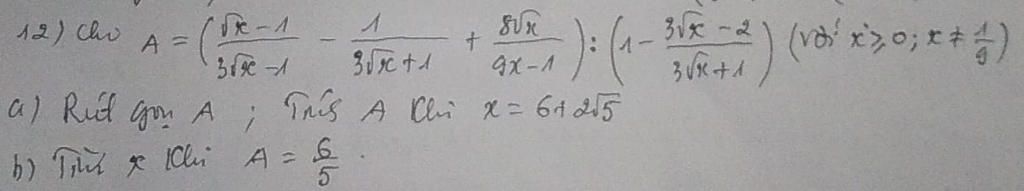 12) Cho A = (√x - 1 / 3√x - 1 - 1 / 3√x + 1 + 8√x / 9x - 1) : (1 - 3√x - 2 / 3√x + 1) (với x ≥ 0; x ≠ 1/9)
a) Rút gọn A ; Tính A khi x = 6 + 2√5
b) Tìm x khi A = 6/5.